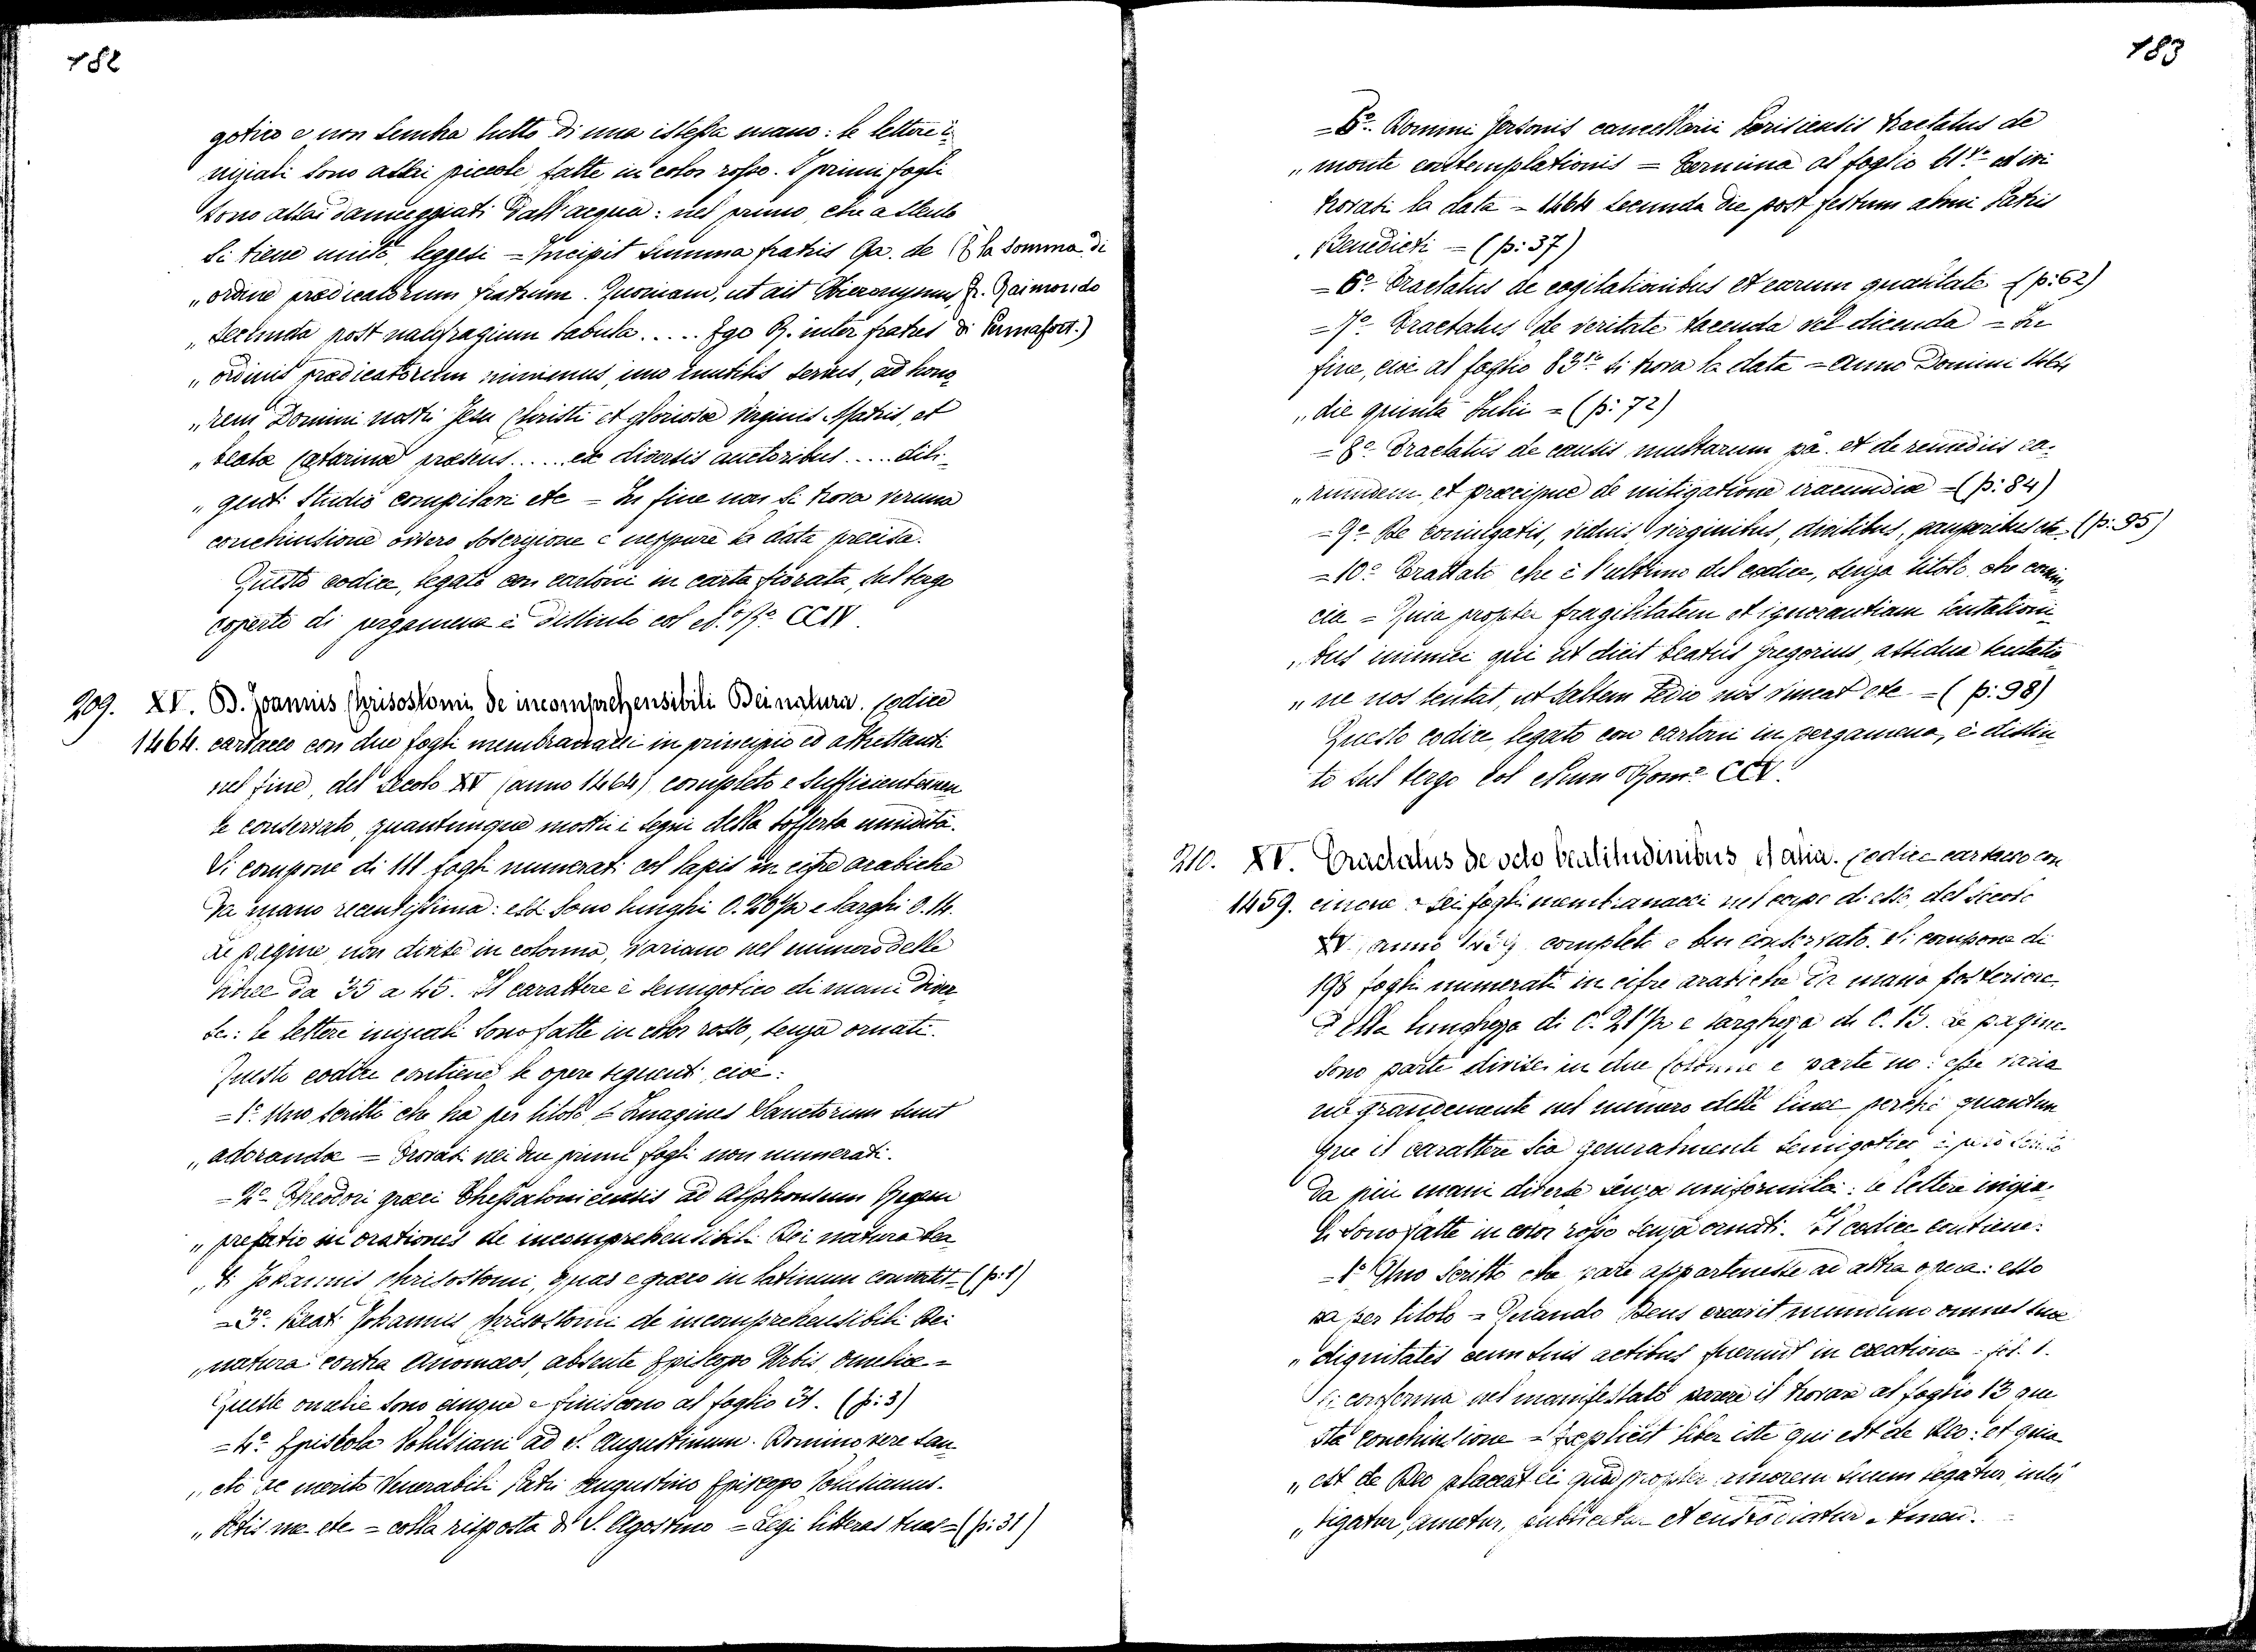 182
gotico e non sembra tutto di una istessa mano: le lettere i=
niziali sono assai piccole fatte in color rosso. I primi fogli
sono assai danneggiati dall'acqua: nel primo, che a stento
si tiene unito, leggesi = Incipit Summa fratris Ra. de (È la Somma di
„ ordine prædicatorum fratrum. Quoniam, ut ait Hieronymus, F. Raimondo
„ secunda post naufragium tabula ..... Ego R. inter fratres di Pennafort.)
„ ordinis prædicatorum minimus, imo inutilis servus, ad hono
„ rem Domini nostri Jesu Christi et gloriosæ Virginis Matris, et
„ beatæ Catarinæ præsens ..... ex diversis auctoribus ..... dili=
„ genti studio compilavi etc = In fine non si trova veruna
conchiusione ovvero soscrizione e neppure la data precisa.
Questo codice, legato con cartoni in carta fiorata, sul tergo
coperto di pergamena è distinto col N.º R.º CCIV.
209. XV. B. Joannis Chrisostomi de incomprehensibili Dei natura. Codice
1464. cartaceo con due fogli membranacei in principio ed altrettanti
nel fine, del secolo XV (anno 1464) completo e sufficientemen
te conservato, quantunque mostri i segni della sofferta umidità.
Si compone di 111 fogli numerati col lapis in cifre arabiche
da mano recentissima: essi sono lunghi 0.20½ e larghi 0.14.
Le pagine, non divise in colonna, variano nel numero delle
linee da 35 a 45. Il carattere è semigotico di mani diver
se: le lettere iniziali sono fatte in color rosso, senza ornati.
Questo codice contiene le opere seguenti, cioè:
= 1º Uno scritto che ha per titolo = Imagines Sanctorum sunt
„ adorandæ = Trovasi nei due primi fogli non numerati.
= 2º Theodori græci Thessalonicensis ad Alphonsum Regem
„ prefatio in orationes de incomprehensibili Dei natura bea
„ ti Johannis Chrisostomi, quas e græco in latinum convertit = (p: 1)
= 3º Beati Johannis Chrisostomi de incomprehensibili Dei
„ natura contra Anomæos, absente Episcopo Urbis, Omeliæ =
Queste omelie sono cinque e finiscono al foglio 31. (p: 3)
= 4º Epistola Volusiani ad S. Augustinum. Domino vere san
„ cto ac merito Venerabili Patri Augustino Episcopo Volusianus.
„ Petis me etc. = colla risposta di S. Agostino = Legi litteras tuas = (p: 31)
183
= 5º Domini Jersonis cancellarii Parisiensis tractatus de
„ monte contemplationis = Termina al foglio 61º ed ivi
trovasi la data = 1464 secunda die post festum almi Patris
„ Benedicti = (p: 37)
= 6º Tractatus de cogitationibus et earum qualitate = (p: 62)
= 7º Tractatus de veritate tacenda vel dicenda = In
fine, cioè al foglio 83º si trova la data = Anno Domini 1464
„ die quinta Julii = (p: 72)
= 8º Tractatus de causis multarum pa. et de remediis ea=
„ rumdem, et præcipue de mitigatione iracundiæ = (p: 84)
= 9º De coniugatis, viduis, virginibus, divitibus, pauperibus etc = (p: 95)
= 10º Trattato che è l'ultimo del codice, senza titolo, che comin
cia = Quia propter fragilitatem et ignorantiam tentationi
„ bus inimici qui ut dicit beatus Gregorius, assidua tentatio
„ ne nos tentat, ut saltem tedio nos vincat etc = (p: 98)
Questo codice, legato con cartoni in pergamena, è distin
to sul tergo col Num Rom.º CCV.
210. XV. Tractatus de octo beatitudinibus et alia. Codice cartaceo con
1459. cinque o sei fogli membranacei nel corpo di esso, del secolo
XV, anno 1459 completo e ben conservato. Si compone di
198 fogli numerati in cifre arabiche da mano posteriore
della lunghezza di C. 21½ e larghezza di C. 15. Le pagine
sono parte divise in due colonne e parte no: esse varia
no grandemente nel numero delle linee perchè quantun
que il carattere sia generalmente semigotico è però scritto
da più mani diverse senza uniformità: le lettere inizia=
li sono fatte in color rosso senza ornati. Il codice contiene:
= 1º Uno Scritto che pare appartenesse ad altra opera: esso
ha per titolo = Quando Deus creavit mundum omnes suæ
„ dignitates cum suis actibus fuerunt in creatione = fol. 1.
Si conferma nel manifestato parere il trovare al foglio 13 que
sta conchiusione = Explicit liber iste qui est de Deo: et quia
„ est de Deo placeat ei quod propter amorem suum legatur, intel
„ ligatur, ametur, publicetur et custodiatur. Amen. =